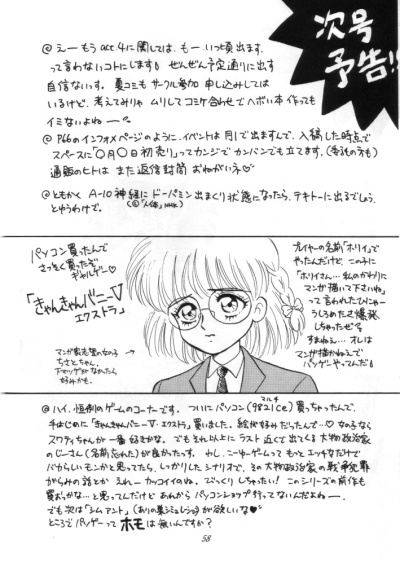 次号
予告!!
@ えー もう act.4に関しては、もー いつ頃出ます、
って言わないコトにします。ぜんぜん予定通りに出す
自信ないっす。夏コミも サークル参加 申し込みしては
いるけど、考えてみりゃ ムリしてコミケ合わせでヘボい本作っても
イミないよねー。
@ P66のインフォメページのように、イベントは 月1で出ますんで、入稿した時点で
スペースに「〇月〇日初売り」ってカンジで カンバンでも立てます。
通販のヒトは また返信封筒 おねがいネ♡
@ ともかく A-10神経に ドーパミン出まくり状態になったら、テキトーに出るでしょう、
とゆうわけで。
パソコン買ったんで
さっそく買ったぞ
ギャルゲー♡
「きゃんきゃんバニーV
エクストラ」
マンガ家志望の女の子
ちさとちゃん、
下マツゲがなかったら
好みかも。
プレイヤーの名前「ホリイ」で
やったんだけど、この子に
「ホリイさん…私のかわりに
マンガ描いて下さいね」
って言われたひにゃー
うしろめたさ爆発
しちゃったぜ
すまねえ… オレは
マンガ描かねえで
パソゲーやってんだ
@ ハイ、恒例のゲームのコーナーです。ついにパソコン(98マルチCe)買っちゃったんで、
手はじめに「きゃんきゃんバニーV エクストラ」買いました。絵が好みだったんで…♡ 女の子なら
スワティちゃんが一番好きかな。でもそれ以上に ラスト近くで出てくる 大物政治家
のじーさん(名前忘れた)が良かったっす。わし、こーゆーゲームって もっとエッチなだけで
バカらしいモンかと思ってたら、しっかりしたシナリオで、その大物政治家の戦争犯罪
がらみの話とか えれーカッコイイのね。びっくりしちゃったい! このシリーズの前作も
買おっかな…と思ってんだけど あれから パソコンショップ行ってないんだよねー。
でも次は「シムアント」(ありの巣シミュレーション)が欲しいな♥
ところでパソゲーって ホモは無いんですか?
58